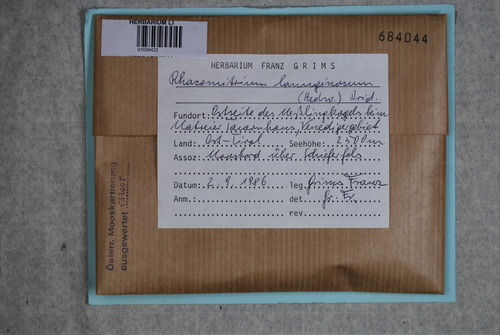 HERBARIUM LI
01658422
684044
HERBARIUM FRANZ GRIMS
Rhacomitrium lanuginosum
(Hedw.) Brid.
Fundort: Ostseite des Meßlingkogels beim
Matreier Tauernhaus, Venedigergebiet
Land: Ost-Tirol Seehöhe: 2500m
Assoz: Moosbord über Schieferfels
Datum: 2.9.1986 leg. Grims Franz
Anm.: det. Gr. Fr.
rev.
Österr. Mooskartierung
ausgewertet